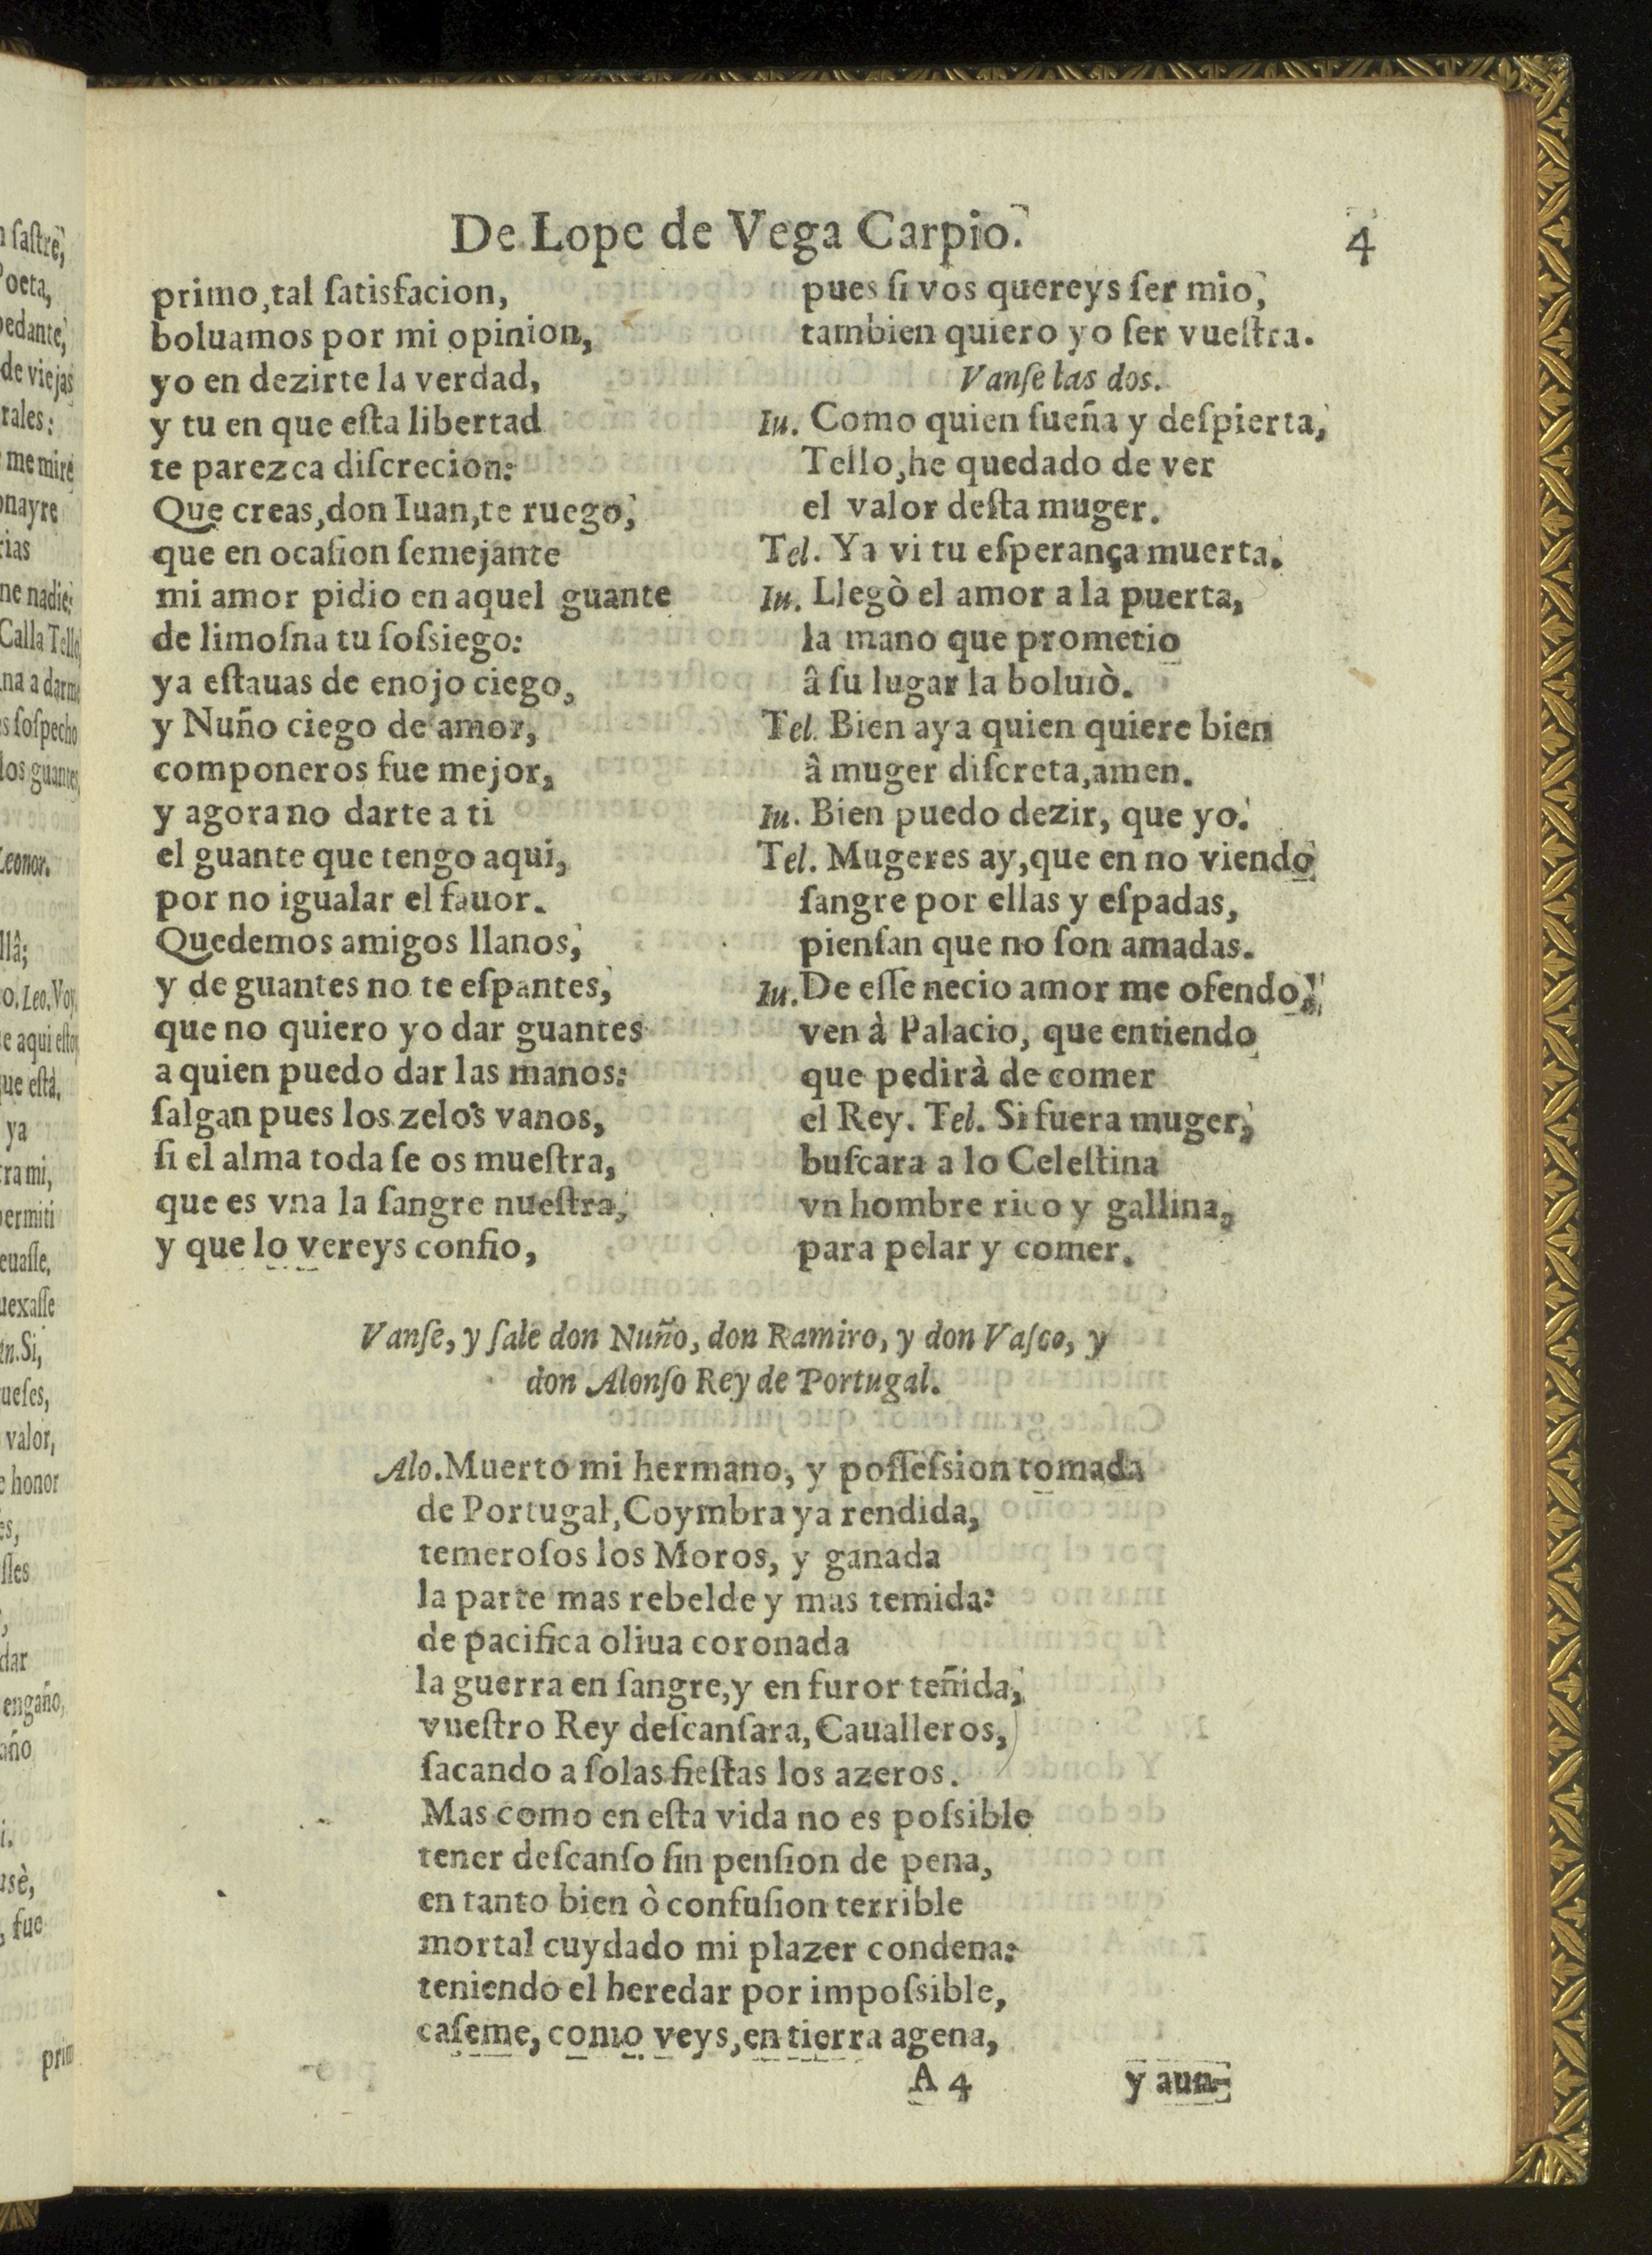 De Lope de Vega Carpio.
4
primo, tal ſatisfacion,
boluamos por mi opinion,
yo en dezirte la verdad,
y tu en que eſta libertad
te parezca diſcrecion:
Que creas, don Iuan, te ruego,
que en ocaſion ſemejante
mi amor pidio en aquel guante
de limoſna tu ſoſsiego:
ya eſtauas de enojo ciego,
y Nuño ciego de amor,
componeros fue mejor,
y agora no darte a ti
el guante que tengo aqui,
por no igualar el fauor.
Quedemos amigos llanos,
y de guantes no te eſpantes,
que no quiero yo dar guantes
a quien puedo dar las manos:
ſalgan pues los zelos vanos,
ſi el alma toda ſe os mueſtra,
que es vna la ſangre nueſtra,
y que lo vereys confio,
pues ſi vos quereys ſer mio,
tambien quiero yo ſer vueſtra.
Vanſe las dos.
Iu. Como quien ſueña y deſpierta,
Tello, he quedado de ver
el valor deſta muger.
Tel. Ya vi tu eſperança muerta.
Iu. Llegò el amor a la puerta,
la mano que prometio
â ſu lugar la boluiò.
Tel. Bien aya quien quiere bien
â muger diſcreta, amen.
Iu. Bien puedo dezir, que yo.
Tel. Mugeres ay, que en no viendo
ſangre por ellas y eſpadas,
pienſan que no ſon amadas.
Iu. De eſſe necio amor me ofendo,
ven à Palacio, que entiendo
que pedirà de comer
el Rey. Tel. Si fuera muger,
buſcara a lo Celeſtina
vn hombre rico y gallina,
para pelar y comer.
Vanſe, y ſale don Nuño, don Ramiro, y don Vaſco, y
don Alonſo Rey de Portugal.
Alo. Muerto mi hermano, y poſſeſsion tomada
de Portugal, Coymbra ya rendida,
temeroſos los Moros, y ganada
la parte mas rebelde y mas temida:
de pacifica oliua coronada
la guerra en ſangre, y en furor teñida,
vueſtro Rey deſcanſara, Caualleros,
ſacando a ſolas fieſtas los azeros.
Mas como en eſta vida no es poſsible
tener deſcanſo ſin penſion de pena,
en tanto bien ò confuſion terrible
mortal cuydado mi plazer condena:
teniendo el heredar por impoſsible,
caſeme, como veys, en tierra agena,
A 4
y aun-